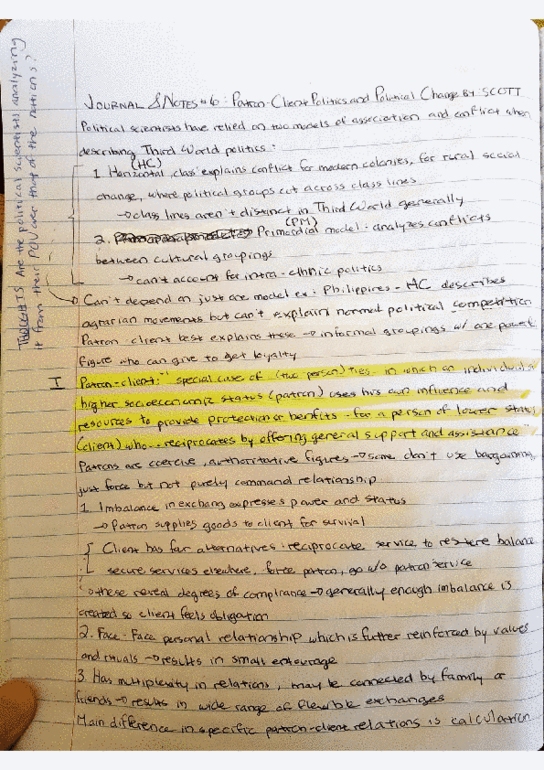 JOURNAL & NOTES #6: Patron-Client Politics and Political Change BY SCOTT
Political scientists have relied on two models of association and conflict when
describing Third World politics:
(HC)
1. Horizontal class: explains conflict for modern colonies, for rural social
change, where political groups cut across class lines
→ class lines aren't distinct in Third World generally
(PM)
2. Primordial model: analyzes conflicts
between cultural groupings
→ can't account for intra-ethnic politics
Can't depend on just one model ex: Philippines - HC describes
agrarian movements but can't explain normal political competition
Patron client best explains these → informal groupings w/ one power
figure who can give to get loyalty
I Patron-client: "special case of (two person) ties in which an individual
higher socioeconomic status (patron) uses his own influence and
resources to provide protection or benfits - for a person of lower status
(client) who - reciprocates by offering general support and assistance"
Patrons are coercive, authoritative figures → some don't use bargaining,
just force but not purely command relationship
1. Imbalance in exchang expresses power and status
→ Patron supplies goods to client for survival
Client has far alternatives: reciprocate service to restore balance
secure services elsewhere, force patron, go w/o patron service
these reveal degrees of compliance → generally enough imbalance is
created so client feels obligation
2. Face-Face personal relationship which is futher reinforced by values
and rituals → results in small entourage
3. Has multiplexity in relations, may be connected by family or
friends → results in wide range of flexible exchanges
Main difference in specific patron-client relations is calculation
THOUGHTS: Are the political scientists analyzing
it from their POV over that of the nations?